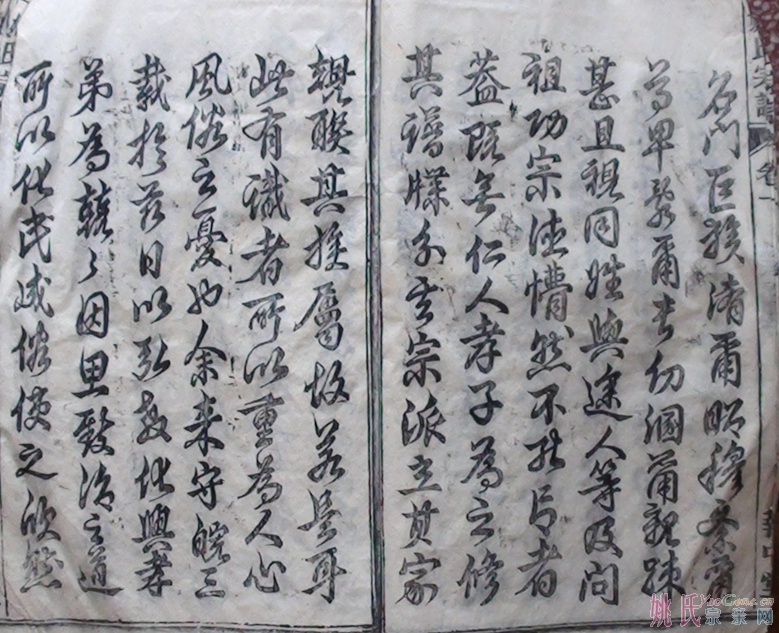 名門巨族淆爾昭穆紊爾
尊卑爾長幼涸爾親踈
甚且視同姓與途人等及問
祖功宗德懵然不能者
蓋既無仁人孝子為之修
其譜牒分其宗派立其家
規聯其族屬故若是耳
此有識者所以重為人心
風俗之憂也余來守皖三
載於茲日以弘教化興孝
弟為兢兢因思致治之道
所以化民成俗使之欣然
氏宗譜
姚氏宗亲网